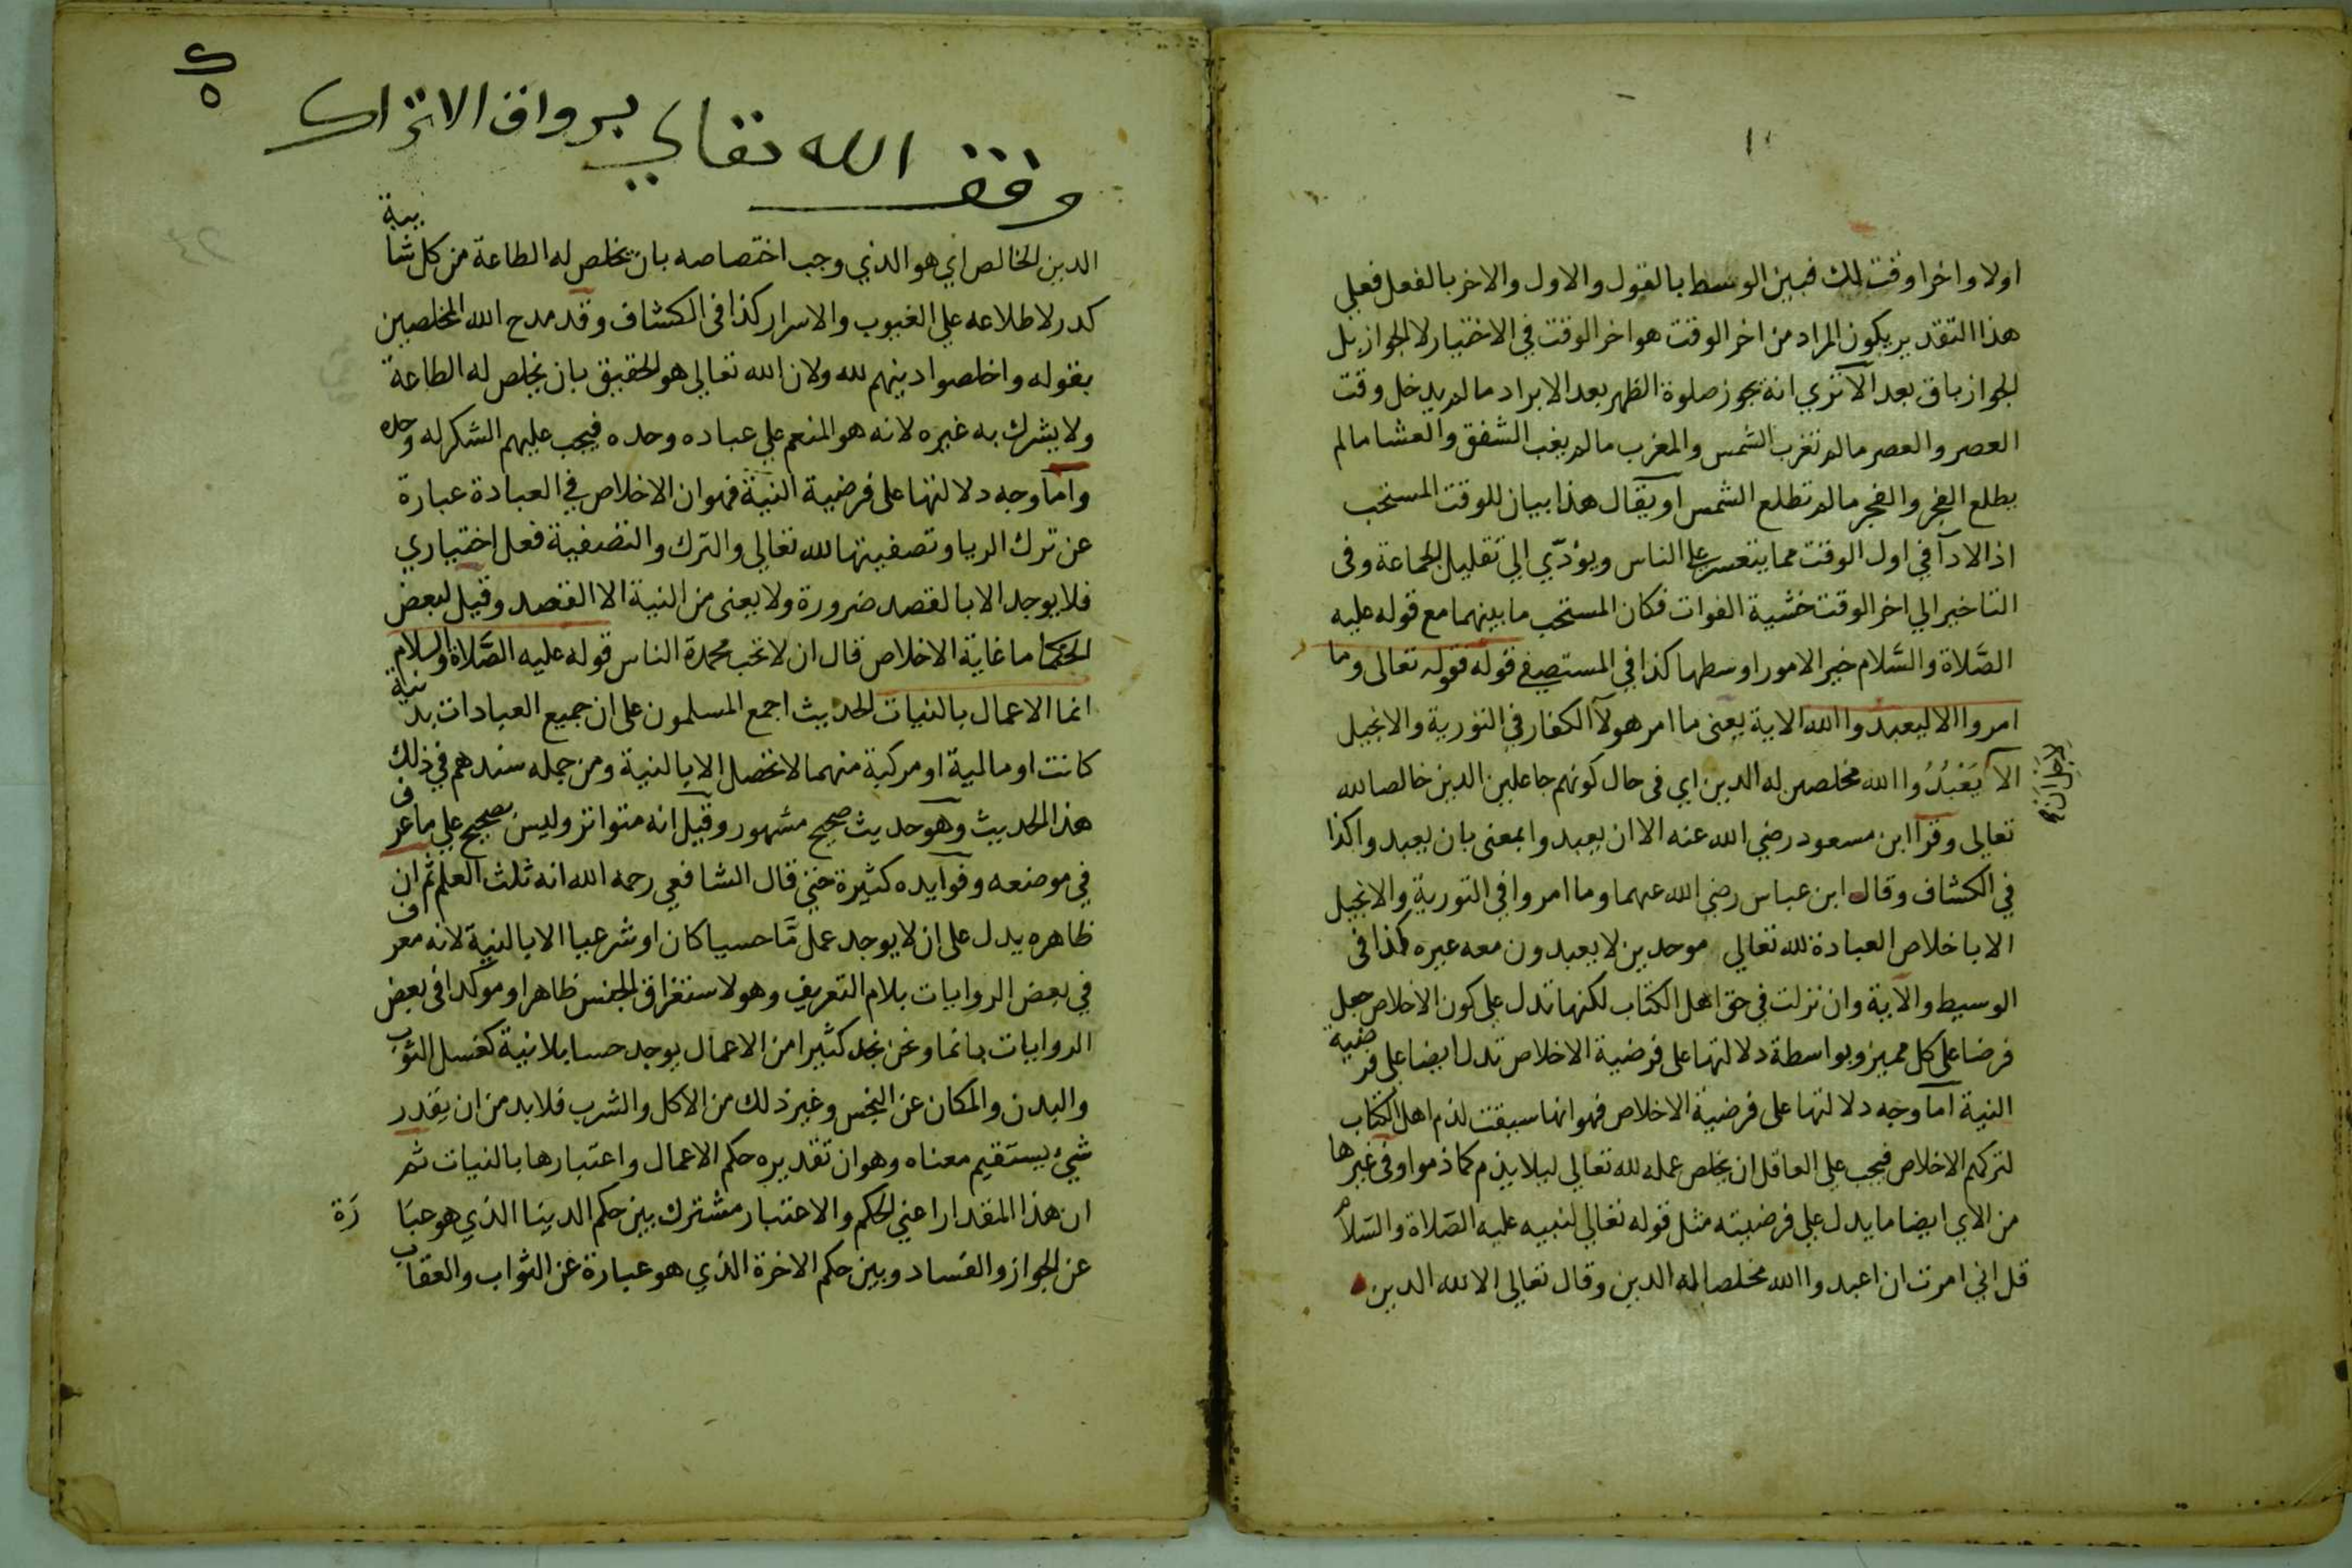 اولا واخرا وقت لك فبين الوسط بالقول والاول والاخر بالفعل فعلي
هذا التقدير يكون المراد من اخر الوقت هو اخر الوقت في الاختيار لا الجواز بل
الجواز باق بعد الا تري انه يجوز صلوة الظهر بعد الابراد ما لم يدخل وقت
العصر والعصر ما لم تغرب الشمس والمغرب ما لم يغب الشفق والعشا ما لم
يطلع الفجر والفجر ما لم تطلع الشمس او يقال هذا بيان للوقت المستحب
اذ الادآ في اول الوقت مما يتعسر على الناس ويؤدّي الي تقليل الجماعة وفي
التاخير الي اخر الوقت خشية الفوات فكان المستحب ما بينهما مع قوله عليه
الصَّلاة والسَّلام خير الامور اوسطها كذا في المستصفي قوله فقوله تعالى وما
امروا الا ليعبدوا الله الاية يعني ما امر هولآ الكفار في التورية والانجيل
الا يَعْبُدُوا الله مخلصين له الدين اي في حال كونهم جاعلين الدين خالصا لله
تعالى وقرا ابن مسعود رضي الله عنه الا ان يعبدوا بمعنى بان يعبدوا كذا
في الكشاف وقال ابن عباس رضي الله عنهما وما امروا في التورية والانجيل
الا باخلاص العبادة لله تعالي موحدين لا يعبدون معه غيره كذا في
الوسيط والآية وان نزلت في حق اهل الكتاب لكنها تدل علي كون الاخلاص جعل
فرضا على كل مميز وبواسطة دلالتها على فرضية الاخلاص تدل ايضا على فرضية
النية اما وجه دلالتها على فرضية الاخلاص فهو انها سيقت لذم اهل الكتاب
لتركهم الاخلاص فيجب علي العاقل ان يخلص عمله لله تعالي ليلا يذم كما ذموا وفي غيرها
من الاي ايضا ما يدل علي فرضيته مثل قوله تعالي لنبيه عليه الصّلاة والسّلام
قل اني امرت ان اعبدوا الله مخلصا له الدين وقال تعالى الا لله الدين
وقف الله تعالي برواق الاتراك
الدين الخالص اي هو الذي وجب اختصاصه بان يخلص له الطاعة من كل شايبة
كدر لاطلاعه علي الغيوب والاسرار كذا في الكشاف وقد مدح الله المخلصين
بقوله واخلصوا دينهم لله ولان الله تعالي هو الحقيق بان يخلص له الطاعة
ولا يشرك به غيره لانه هو المنعم علي عباده وحده فيجب عليهم الشكر له وحده
واما وجه دلالتها على فرضية النية فهو ان الاخلاص في العبادة عبارة
عن ترك الريا وتصفيتها لله تعالي والترك والتصفية فعل اختياري
فلا يوجد الا بالقصد ضرورة ولا يعنى من النية الا القصد وقيل لبعض
الحكما ما غاية الاخلاص قال ان لا تحب محمدة الناس قوله عليه الصَّلاة والسلام
انما الاعمال بالنيات الحديث اجمع المسلمون على ان جميع العبادات بدنية
كانت او مالية او مركبة منهما لا تحصل الا بالنية ومن جمله سندهم في ذلك
هذا الحديث وهو حديث صحيح مشهور وقيل انه متواتر وليس بصحيح علي ما عرف
في موضعه وفوايده كثيرة حتي قال الشافعي رحمه الله انه ثلث العلم ثم ان
ظاهره يدل على ان لا يوجد عمل مَّا حسيا كان او شرعيا الا بالنية لانه معرف
في بعض الروايات بلام التعريف وهو لاستغراق الجنس ظاهرا وموكدا في بعض
الروايات بانما ونحن نجد كثيرا من الاعمال يوجد حسا بلا نية كغسل الثوب
والبدن والمكان عن النجس وغير ذلك من الاكل والشرب فلا بد من ان يقدر
شيء يستقيم معناه وهو ان تقديره حكم الاعمال واعتبارها بالنيات ثم
ان هذا المقدار اعني الحكم والاعتبار مشترك بين حكم الدينا الذي هو عبارة
عن الجواز والفساد وبين حكم الاخرة الذي هو عبارة عن الثواب والعقاب